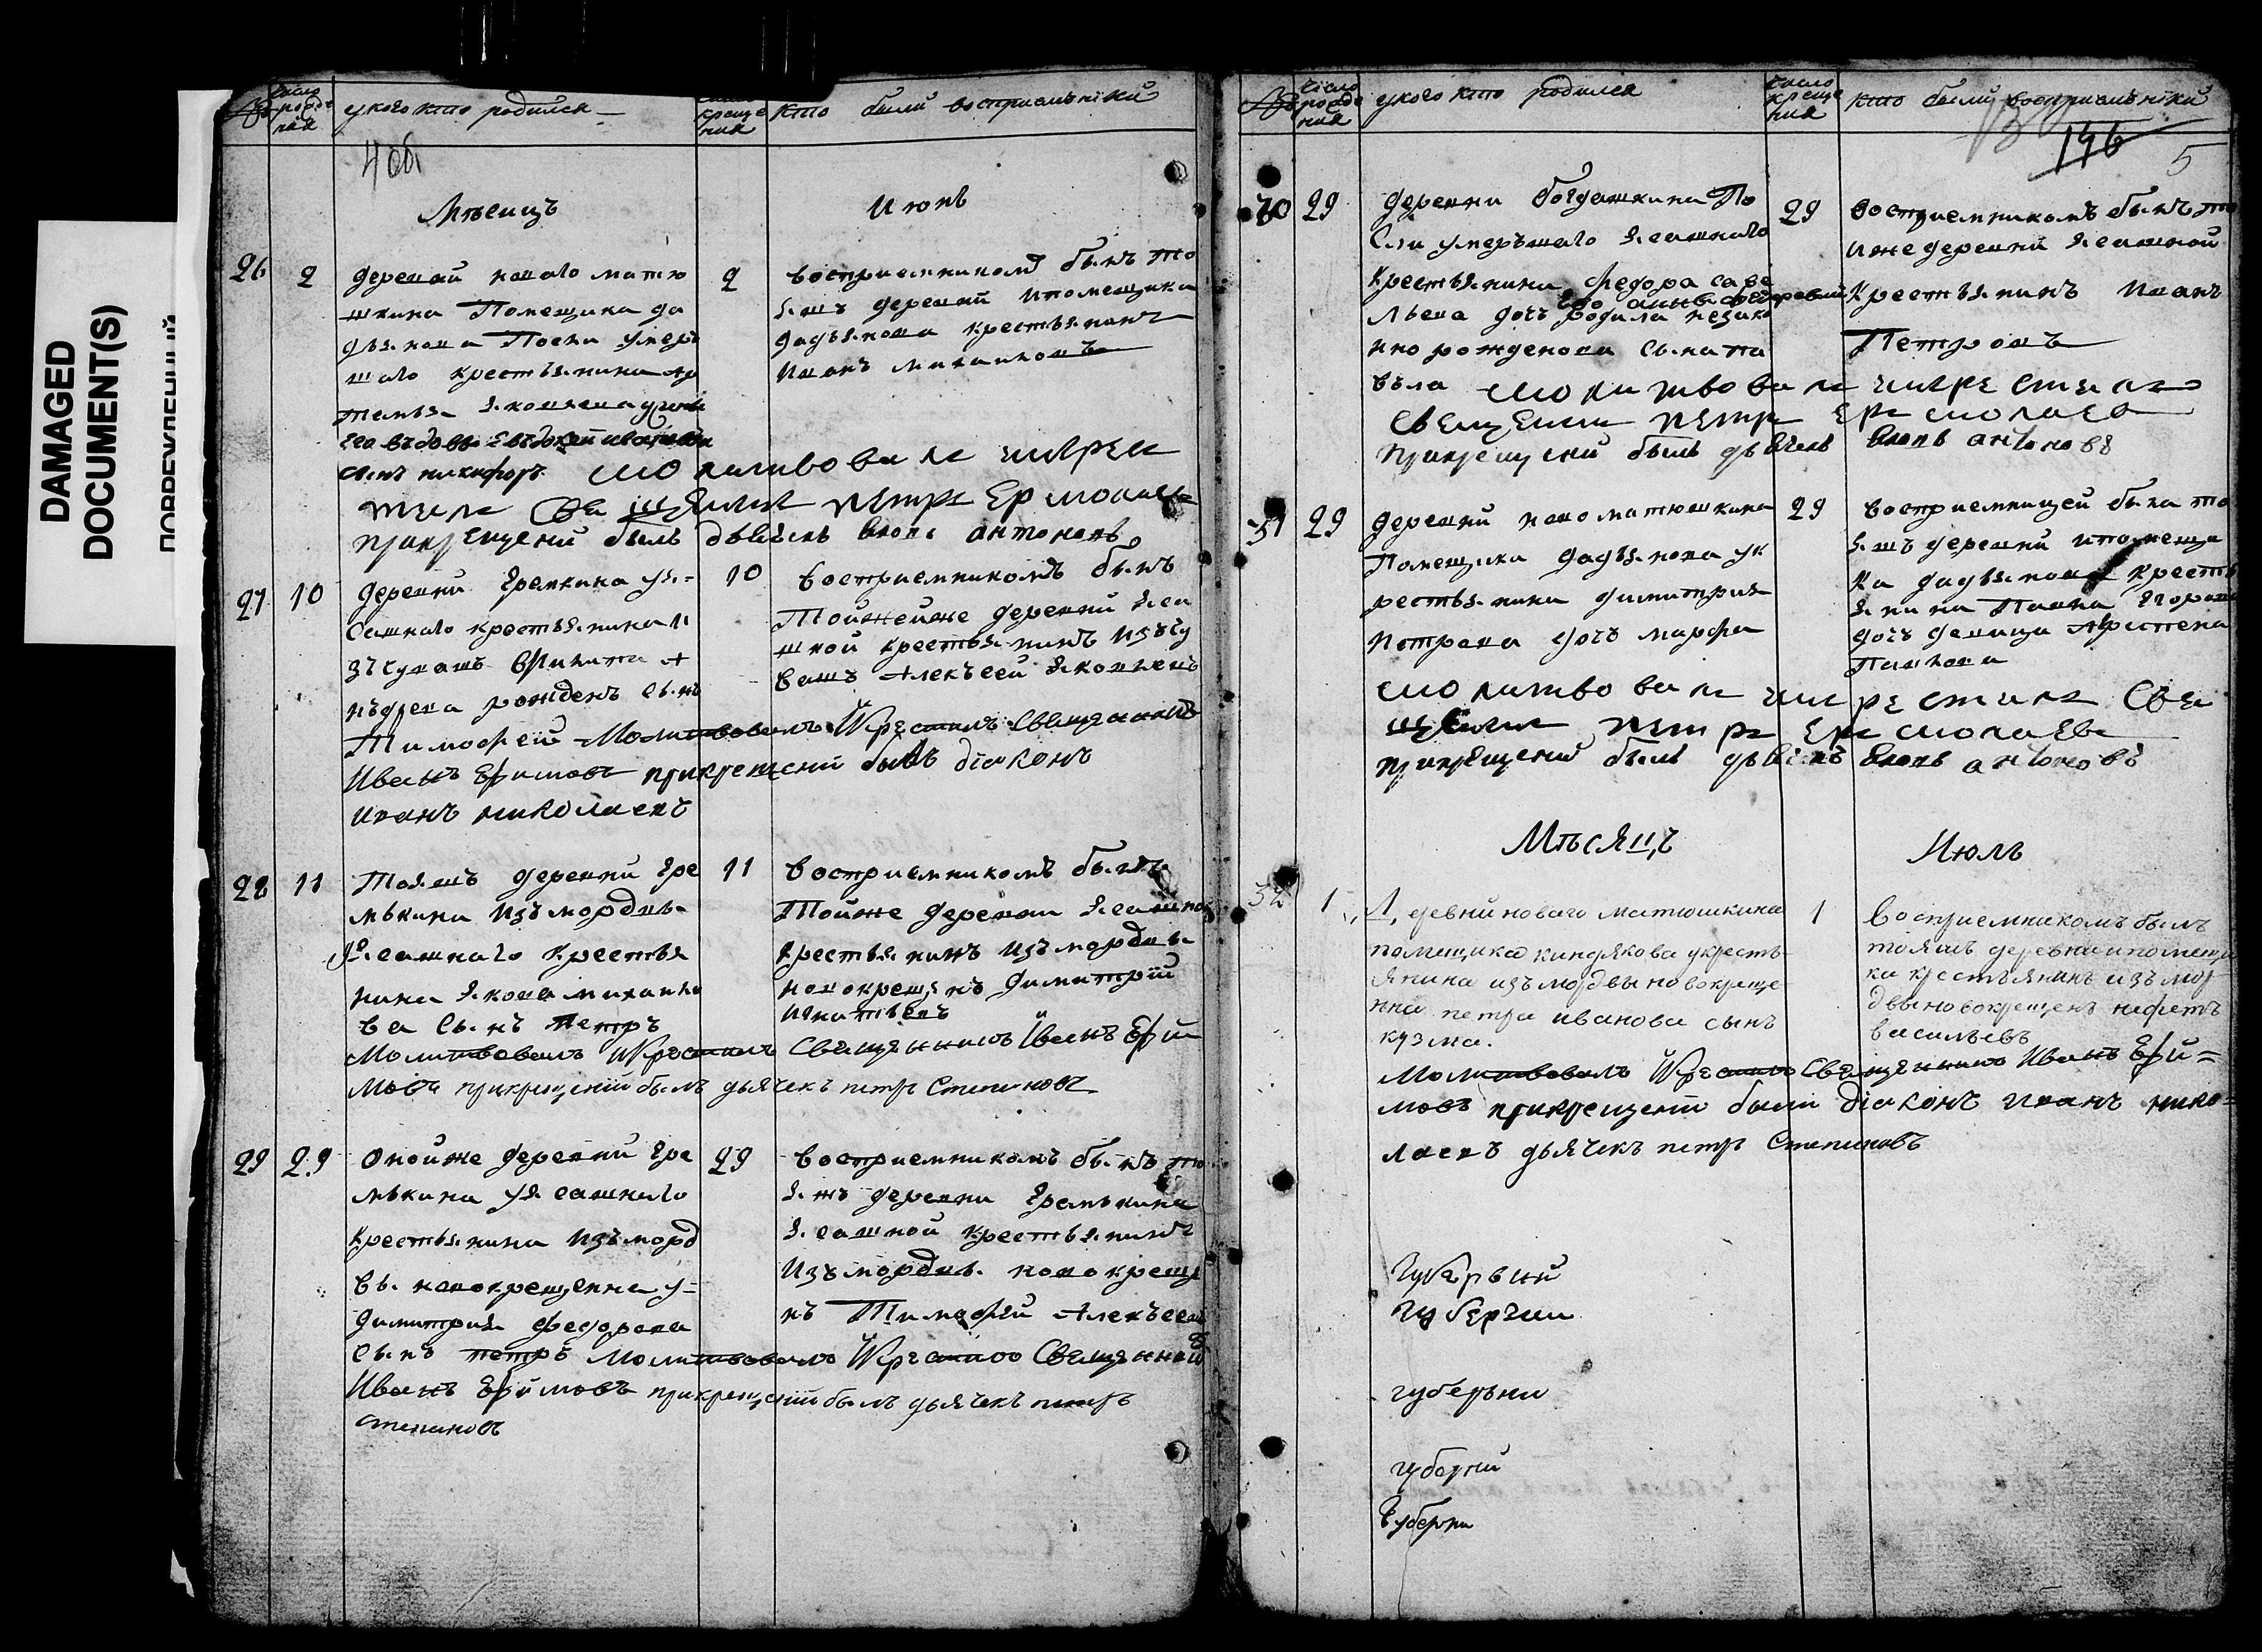 DAMAGED
DOCUMENT(S)
№
число рожде ния
у кого кто родился
число креще ния
кто были восприемъники
4 об
Мѣсицъ
Июнь
26
2
деревни новаго матю
шкина Помещика да
дьянова После умеръ
шаго крестьянина ар
темья яковлева
сынъ никифоръ
молитвовалъ икрес
тилъ Священникъ петръ Ермолаевъ
прикрещении былъ дьячекъ антоновъ
2
восприемникомъ былъ то
яжъ деревни ипомещика
дадьянова крестьянинъ
иванъ михаиловъ
27
10
деревни Еремкина уя=
сашнаго крестьянина и
зъ чувашъ никита а
нъдреева рожденъ сынъ
Тимофей Молитвовалъ Икрестилъ Священникъ
Иванъ Ефимовъ прикрещении былъ дїаконъ
иванъ николаевъ
10
восприемникомъ былъ
Тойжейже деревни яса
шной крестьянинъ изъ чу
вашъ алекъсей яковлевъ
28
11
Тояжъ деревни Ере
мькина изъ мордвы
ясашнаго крестья
нина якова михаило
ва сынъ петръ
Молитвовалъ Икрестилъ Священникъ Иванъ Ефи
мовъ прикрещенїи былъ дьячекъ петръ Степановъ
11
восприемникомъ былъ
Тойже деревни ясашной
крестьянинъ изъ мордвы
новокрещенъ димитрїй
игнатьевъ
29
29
Онойже деревни Ере
мькина уясашнаго
крестьянина изъ морд
вы новокрещенна у=
димитрия федорова
сынъ петръ Молитвовалъ Икрестилъ Священникъ
Иванъ Ефимовъ прикрещенїи былъ дьячекъ петръ
степановъ
29
восприемникомъ былъ то
яжъ деревни Еремькина
ясашной крестьянинъ
изъ мордвы новокреще
нъ Тимофей алекъсеевъ
№
число рожде ния
у кого кто родился
число креще ния
кто были восприемъники
146
5
30
29
деревни богдашкина По
сли умеръшаго ясашнаго
крестьянина федора саве
льева дочь родила незако
нно рожденова сына па
вѣла молитвовалъ икрестилъ
священникъ петръ Ермолаевъ
прикрещении былъ дьячекъ антоновъ
29
восприемникомъ былъ то
иже деревни ясашной
крестьянинъ иванъ
Петровъ
31
29
деревни новоматюшкина
Помещика дадьянова ук
рестьянина димитрия
петрова дочь марфа
молитвовалъ икрестилъ Свя
щенникъ петръ Ермолаевъ
прикрещении былъ дьячекъ антоновъ
29
восприемницей была то
яжъ деревни ипомещи
ка дадьянова кресть
янина Павла Егорова
дочь девица
Павлова
Мѣсяцъ
Июль
32
1
Деревни новаго матюшкина
помещика киндякова укресть
янина изъ мордвы новокреще
нна петра иванова сынъ
кузма.
Молитвовалъ Икрестилъ Священникъ Иванъ Ефи=
мовъ прикрещении были дїаконъ иванъ нико=
лаевъ дьячекъ петръ Степановъ
1
восприемникомъ былъ
тояжъ деревни ипомещи
ка крестьянинъ изъ мор
двы новокрещенъ нефетъ
васильевъ
губернии
губерний
губерьни
губерний
губерни